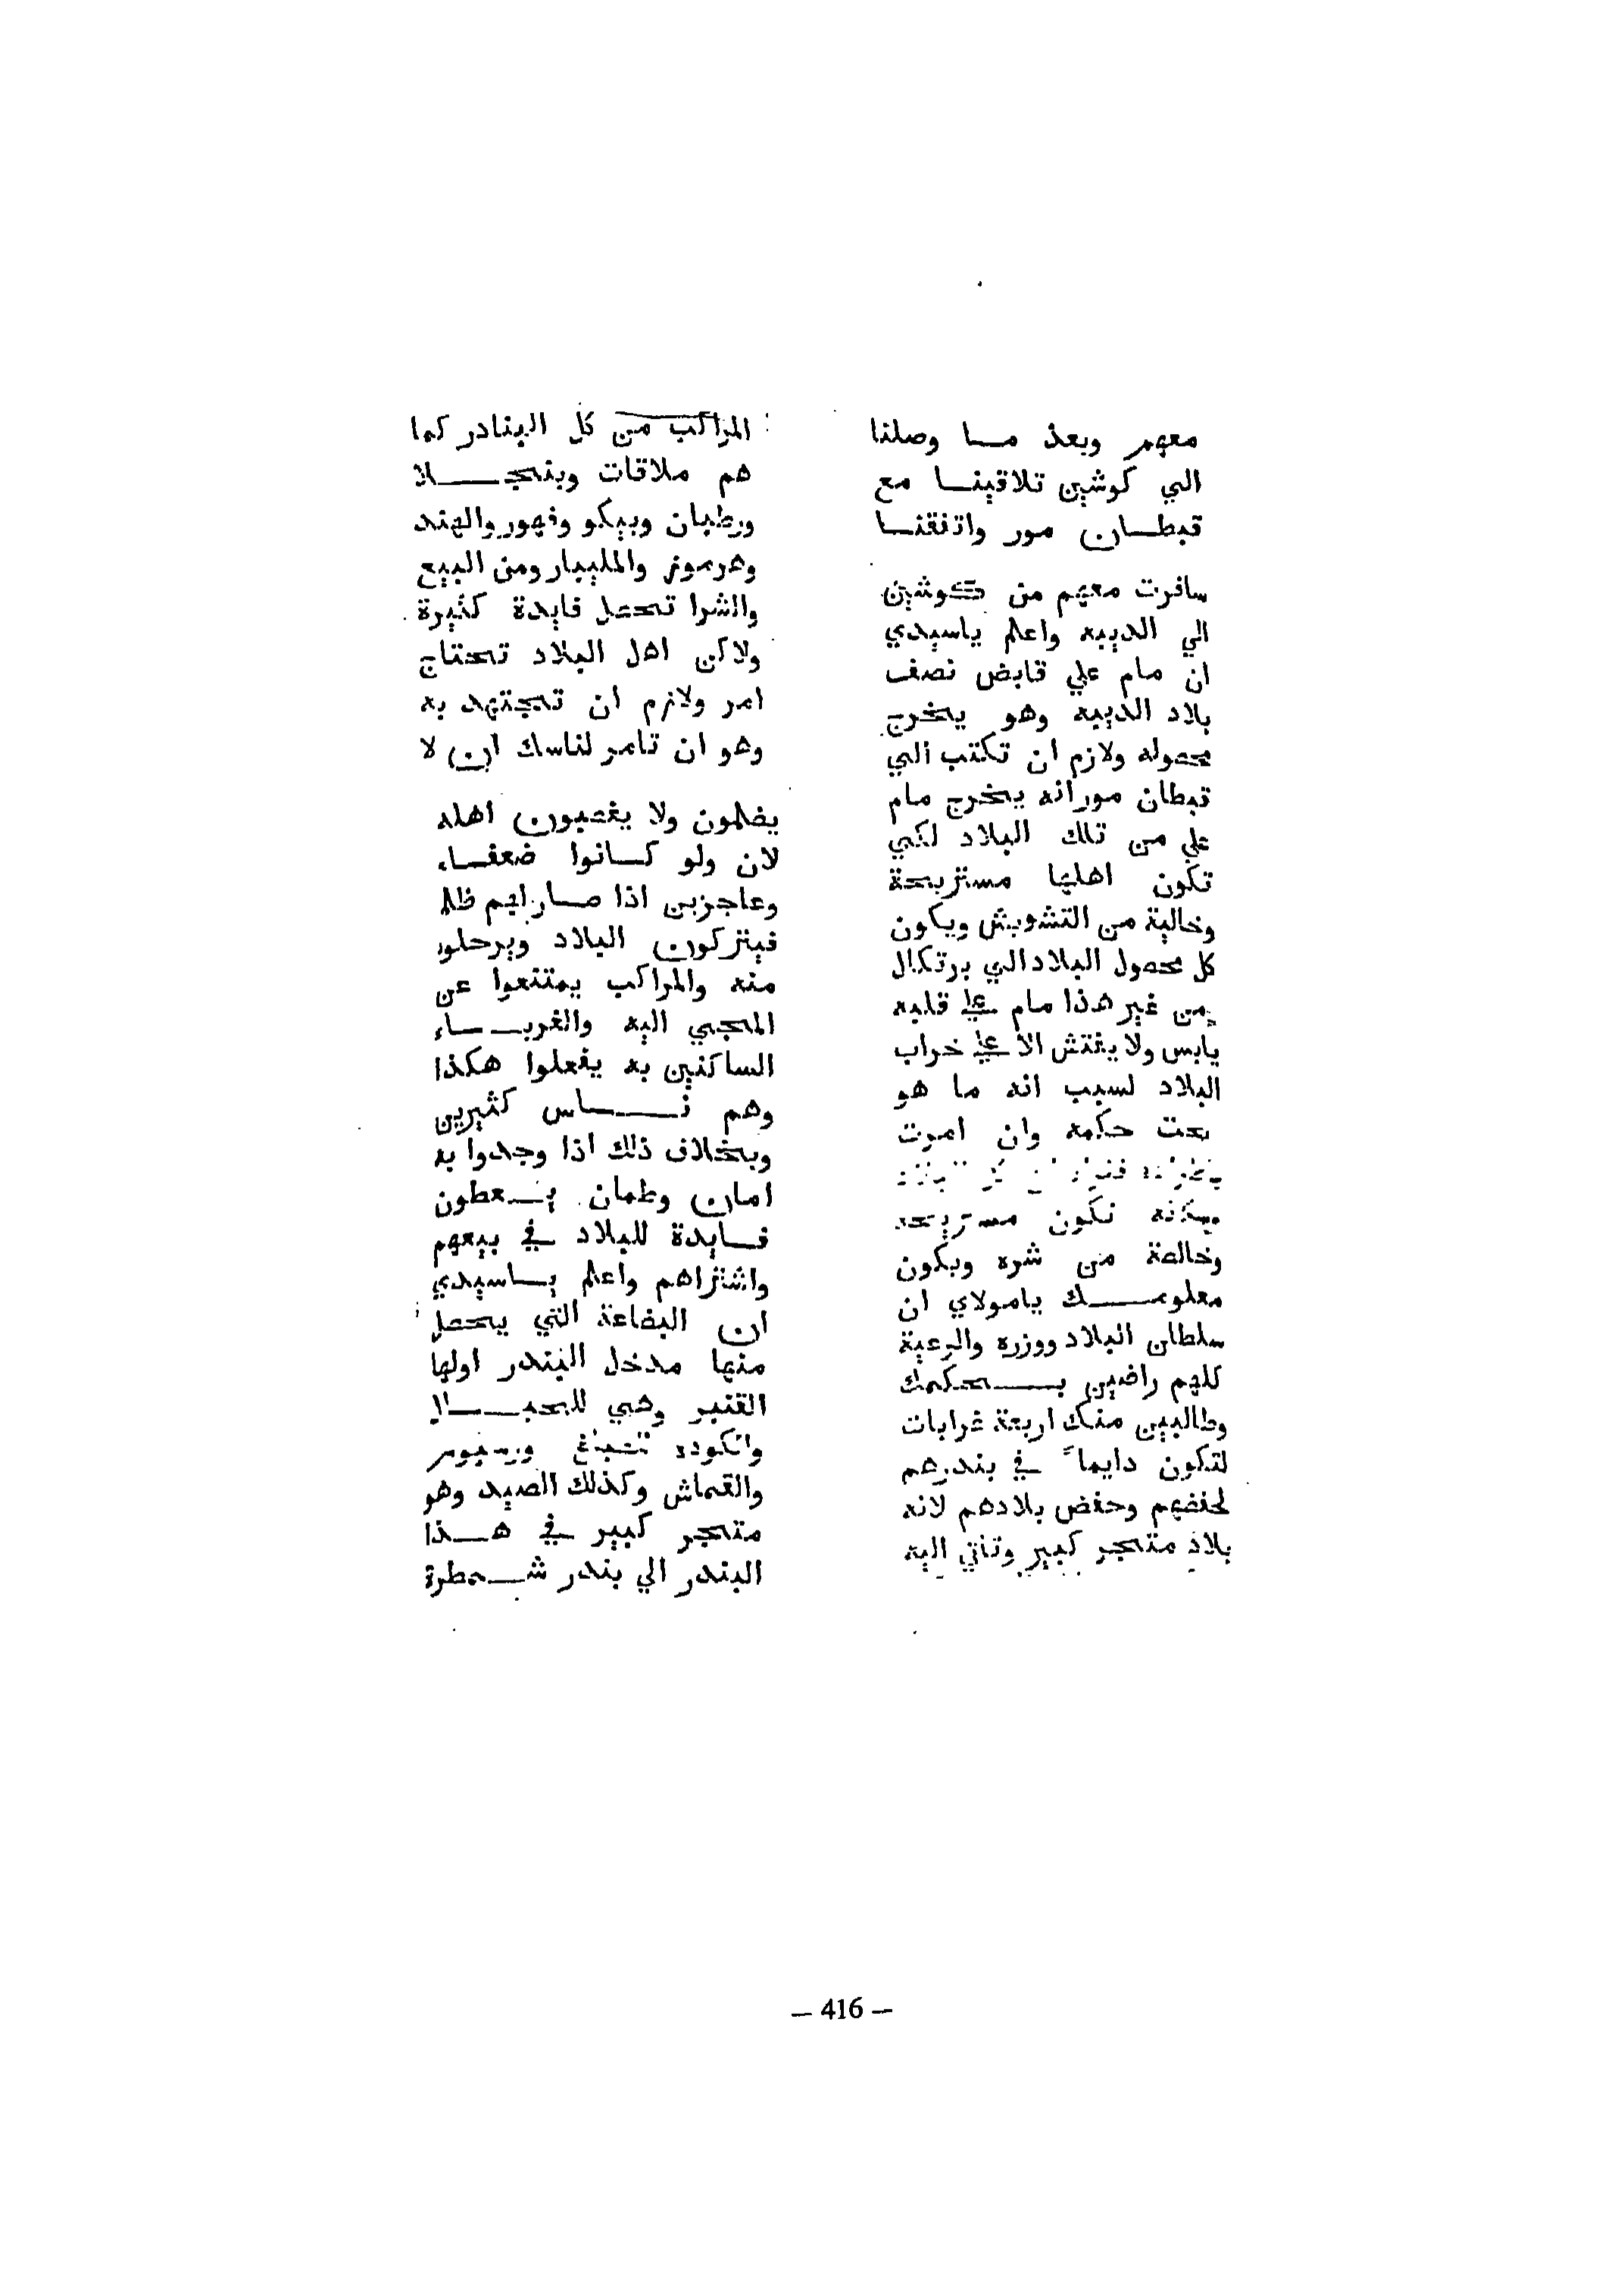 معهم وبعد ما وصلنا
الي كوشين تلاقينا مع
قبطان مور واتفقنا
سافرت معهم من كوشين
الي الديبه واعلم ياسيدي
ان مام علي قابض نصف
بلاد الديبه وهو يخرج
محصوله ولازم ان تكتب الي
قبطان مورانه يخرج مام
علي من تلك البلاد لكي
تكون اهلها مستريحة
وخالية من التشويش ويكون
كل محصول البلاد الي برتكال
من غير هذا مام علي قلبه
يابس ولا يفتش الا علي خراب
البلاد لسبب انه ما هو
تحت حكمه وان امرت
تكون مستريحه
وخالصة من شره ويكون
معلومك يامولاي ان
سلطان البلاد ووزره والرعية
كلهم راضين بحكمك
وطالبين منك اربعة غرابات
لتكون دايماً في بندرهم
لحفضهم وحفض بلادهم لانه
بلاد متجر كبير وتاتي اليه
المراكب من كل البنادر كما
هم ملاقات وبنجالا
ورطبان وبيكو وفهور والهند
وهرموز والمليبار ومن البيع
والشرا تحصل فايدة كثيرة
ولاكن اهل البلاد تحتاج
امر ولازم ان تجتهد به
وهو ان تامر لناسك ان لا
يضلمون ولا يغصبون اهله
لان ولو كانوا ضعفاء
وعاجزين اذا صار لهم ظلم
فيتركون البلاد ويرحلو
منه والمراكب يمتنعوا عن
المجي اليه والغرباء
الساكنين به يفعلوا هكذا
وهم ناس كثيرين
وبخلاف ذلك اذا وجدوا به
امان وطمان يعطون
فايدة للبلاد في بيعهم
واشتراهم واعلم ياسيدي
ان البضاعة التي يحصل
منها مدخل البندر اولها
القنبر وهي للحبال
والكوده
والقماش وكذلك الصيد وهو
متجر كبير في هذا
البندر الي بندر شمطرة
– 416 –